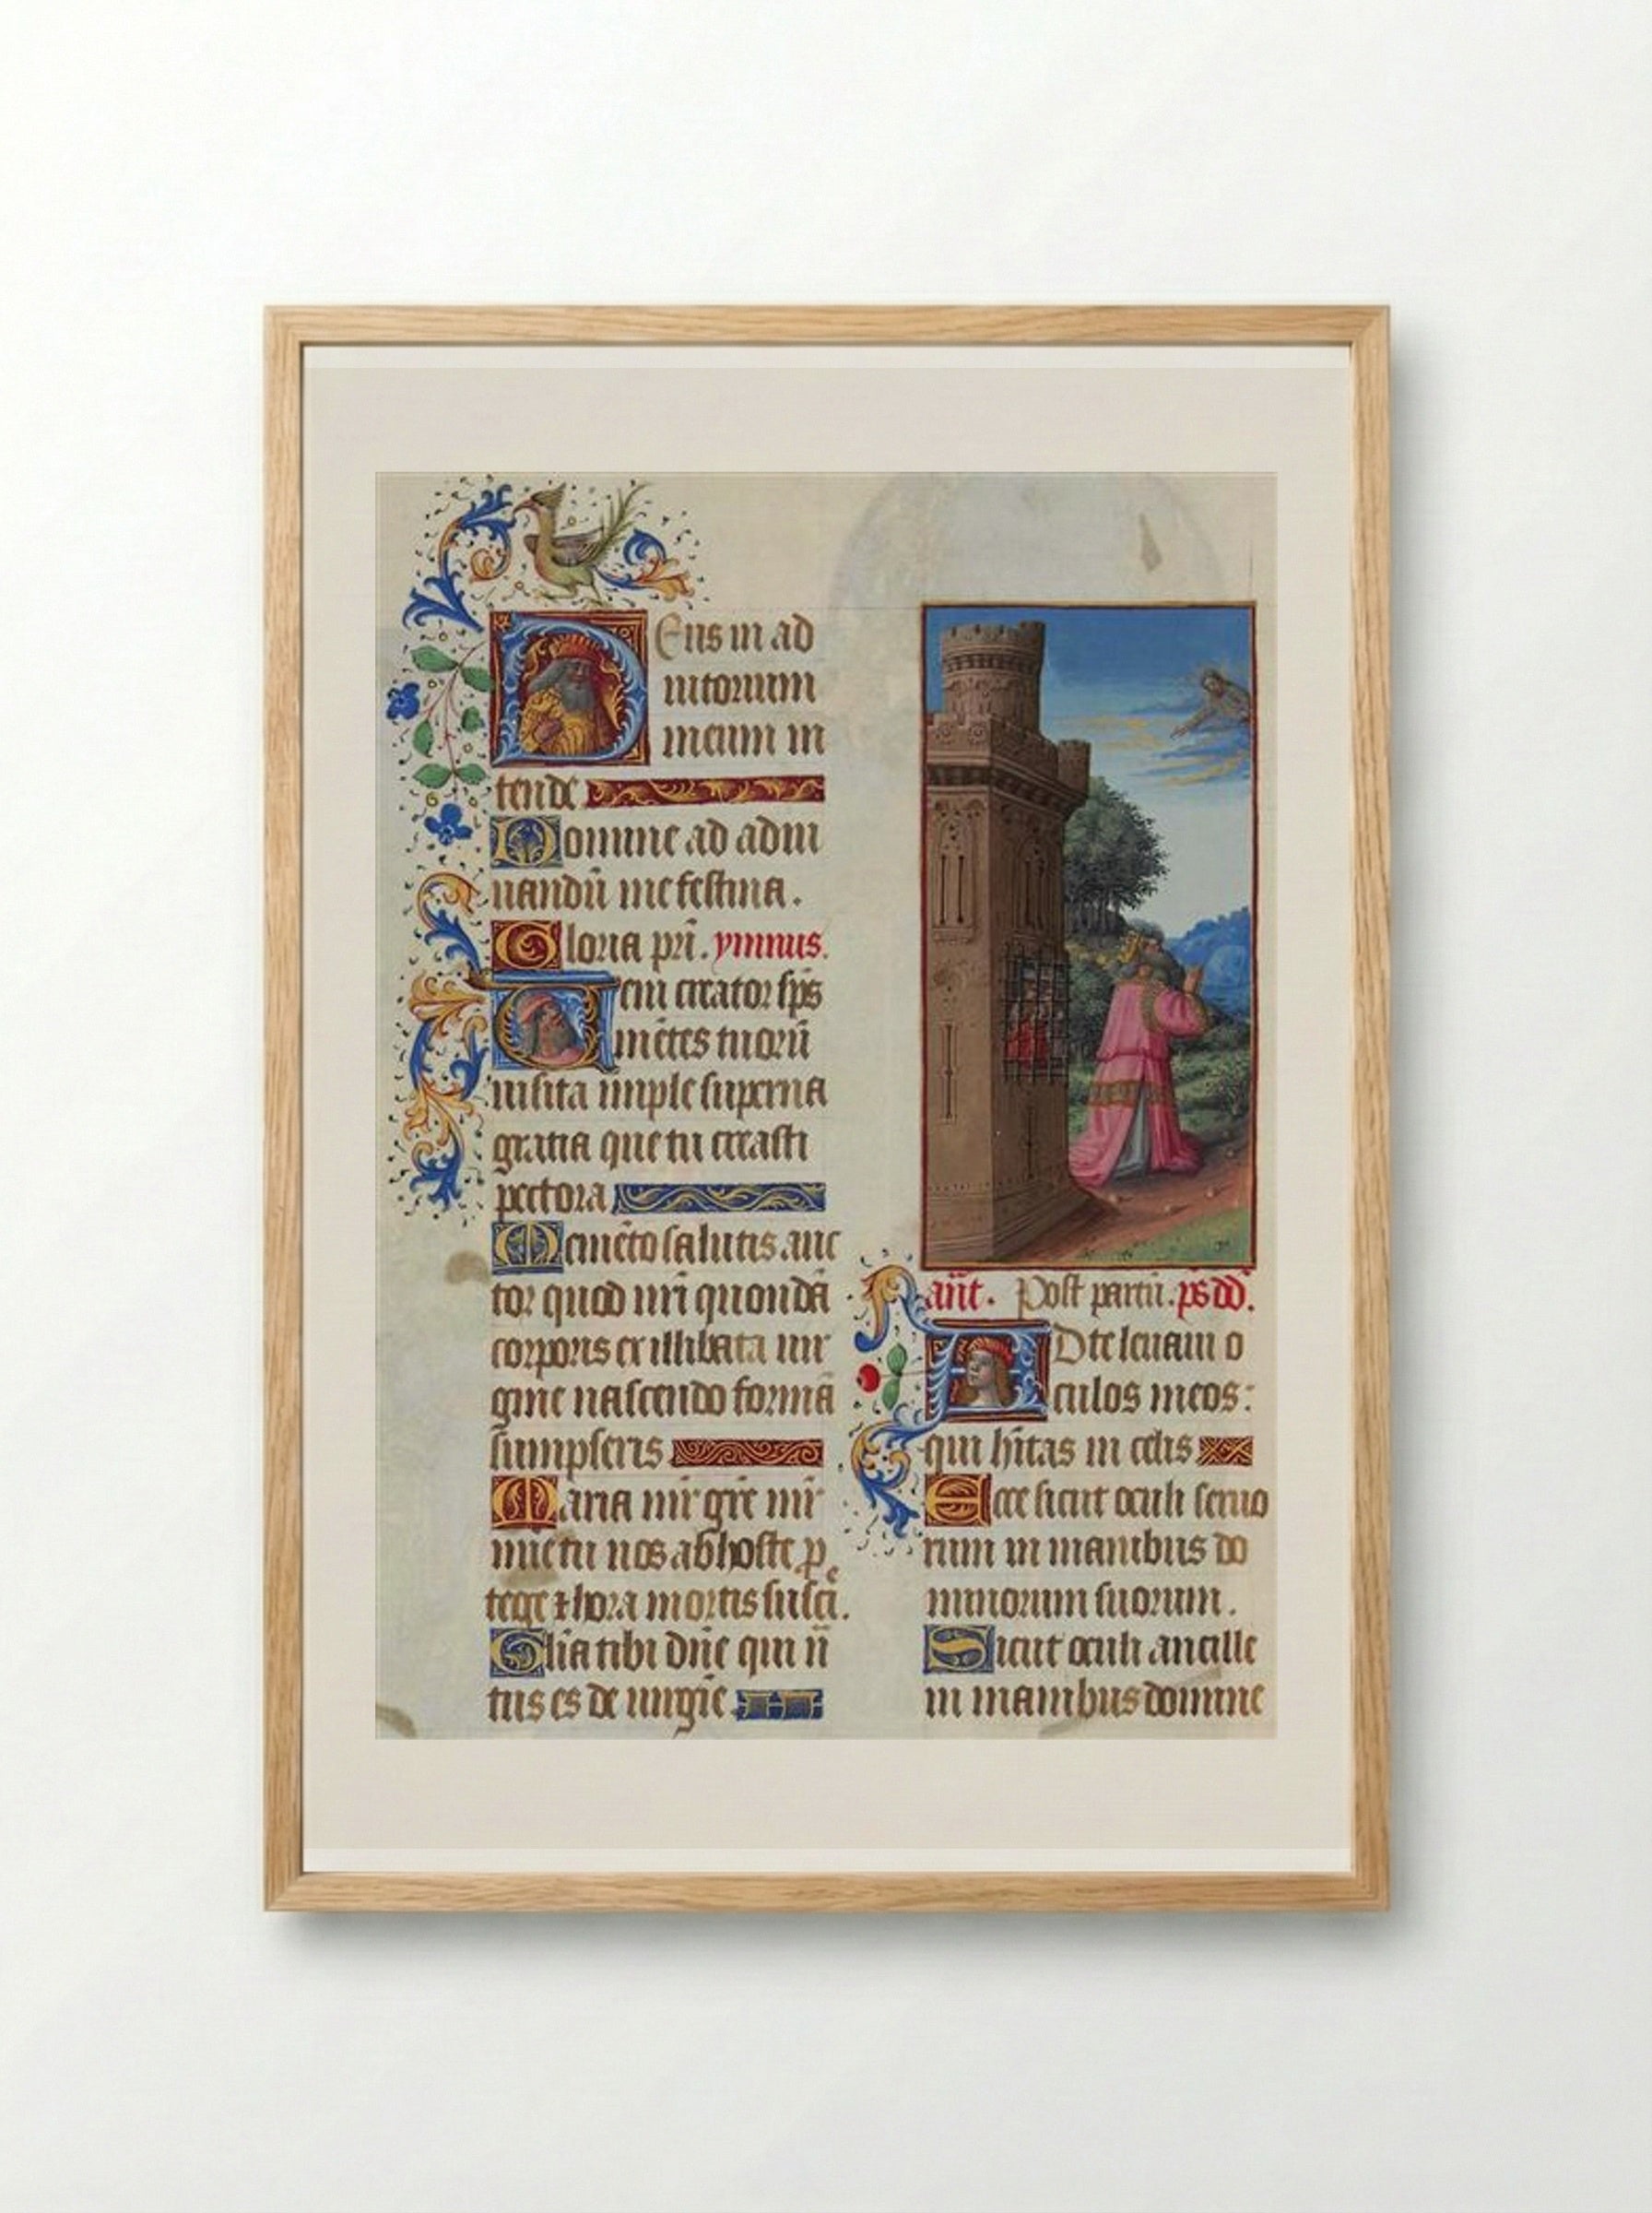 Deus in ad
iutorium
meum in
tende
Domine ad adiu
uandū me festina.
Gloria pri. ymnus.
Veni creator sp̄s
mētes tuorū
uisita imple superna
gratia que tu creasti
pectora
Memēto salutis auc
tor quod nr̄i quondā
corporis ex illibata uir
gine nascendo formā
sumpseris
Maria mr̄ grē mr̄
mie tu nos ab hoste p
tege ⁊ hora mortis susci.
Gl̄ia tibi dn̄e qui n̄
tus es de uirgīe
an̄t. Post partū. ps dd.
AD te leuaui o
culos meos:
qui hītas in celis
Ecce sicut oculi seruo
rum in manibus do
minorum suorum.
Sicut oculi ancille
in manibus domine